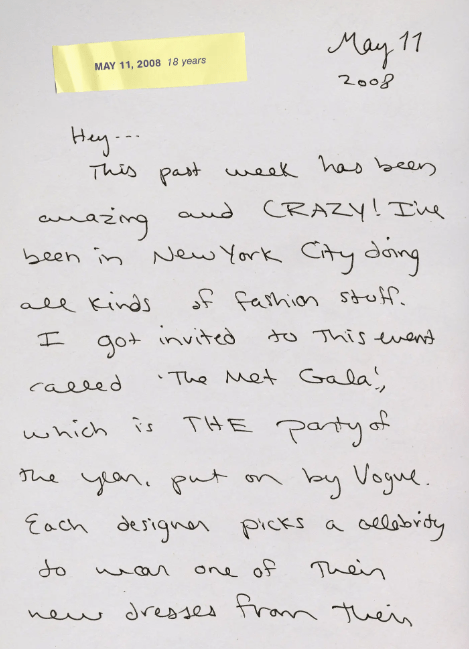 MAY 11, 2008 18 years
May 11
2008
Hey---
This past week has been
amazing and CRAZY! I've
been in New York City doing
all kinds of fashion stuff.
I got invited to this event
called 'The Met Gala',
which is THE party of
the year, put on by Vogue.
Each designer picks a celebrity
to wear one of their
new dresses from their